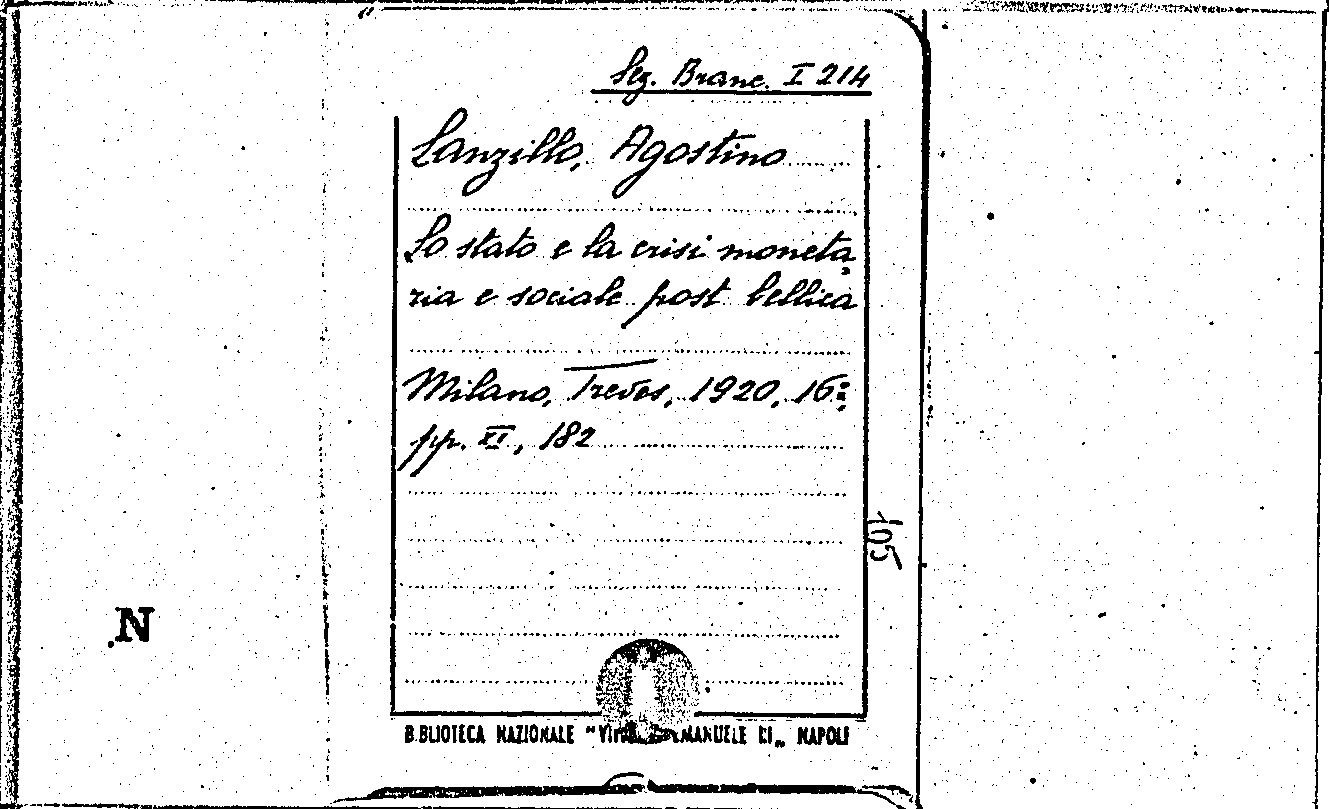 Sez. Branc. I 214
Lanzillo, Agostino
Lo stato e la crisi moneta,
ria e sociale post bellica
Milano, Treves, 1920, 16º
pp. XI, 182
105
N
BIBLIOTECA NAZIONALE "VITT. EMANUELE III„ NAPOLI